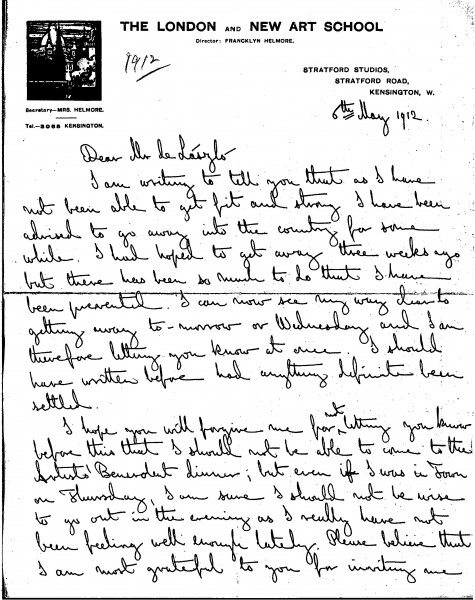 THE LONDON AND NEW ART SCHOOL
Director: FRANCKLYN HELMORE.
1912
STRATFORD STUDIOS,
STRATFORD ROAD,
KENSINGTON, W.
Secretary—MRS. HELMORE.
Tel.—3068 KENSINGTON.
6th May 1912.
Dear Mr de László
I am writing to tell you that as I have
not been able to get fit and strong I have been
advised to go away into the country for some
while. I had hoped to get away three weeks ago
but there has been so much to do that I have
been prevented. I can now see my way clear to
getting away to-morrow or Wednesday and I am
therefore letting you know at once. I should
have written before had anything definite been
settled.
I hope you will forgive me for not letting you know
before this that I should not be able to come to the
Artists' Benevolent dinner; but even if I was in Town
on Thursday, I am sure I should not be wise
to go out in the evening as I really have not
been feeling well enough lately. Please believe that
I am most grateful to you for inviting me